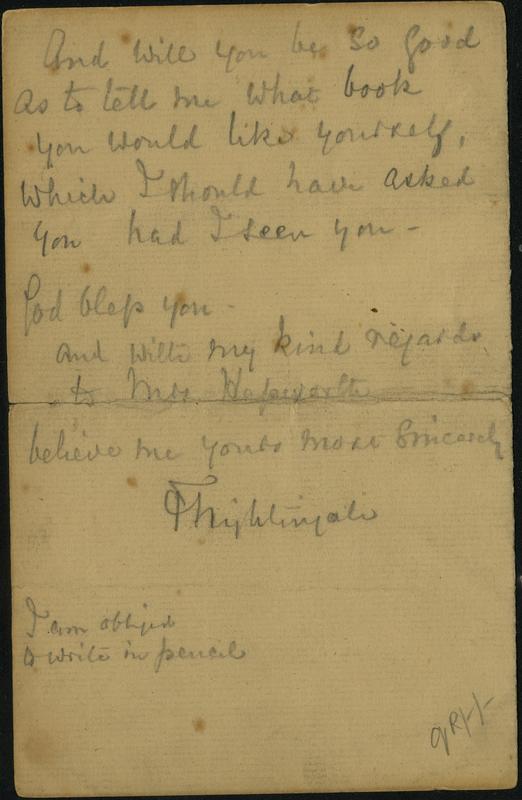 And will you be so good
as to tell me what book
you would like yourself,
which I should have asked
you had I seen you -
God bless you -
and with my kind regards
to Mrs. Hepworth
believe me yours most sincerely
F Nightingale
I am obliged
to write in pencil